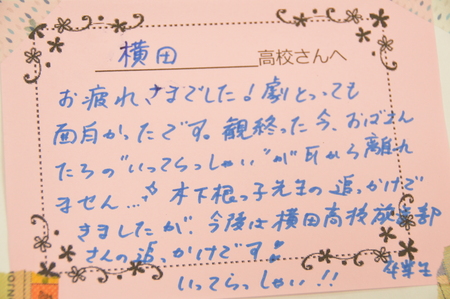 横田 高校さんへ
お疲れさまでした！劇とっても
面白かったです。観終った今、おばさん
たちの"いってらっしゃい"が耳から離れ
ません…
木下根っ子先生の追っかけで
きましたが、今後は横田高校放送部
さんの追っかけです！
いってらっしゃい!!
卒業生